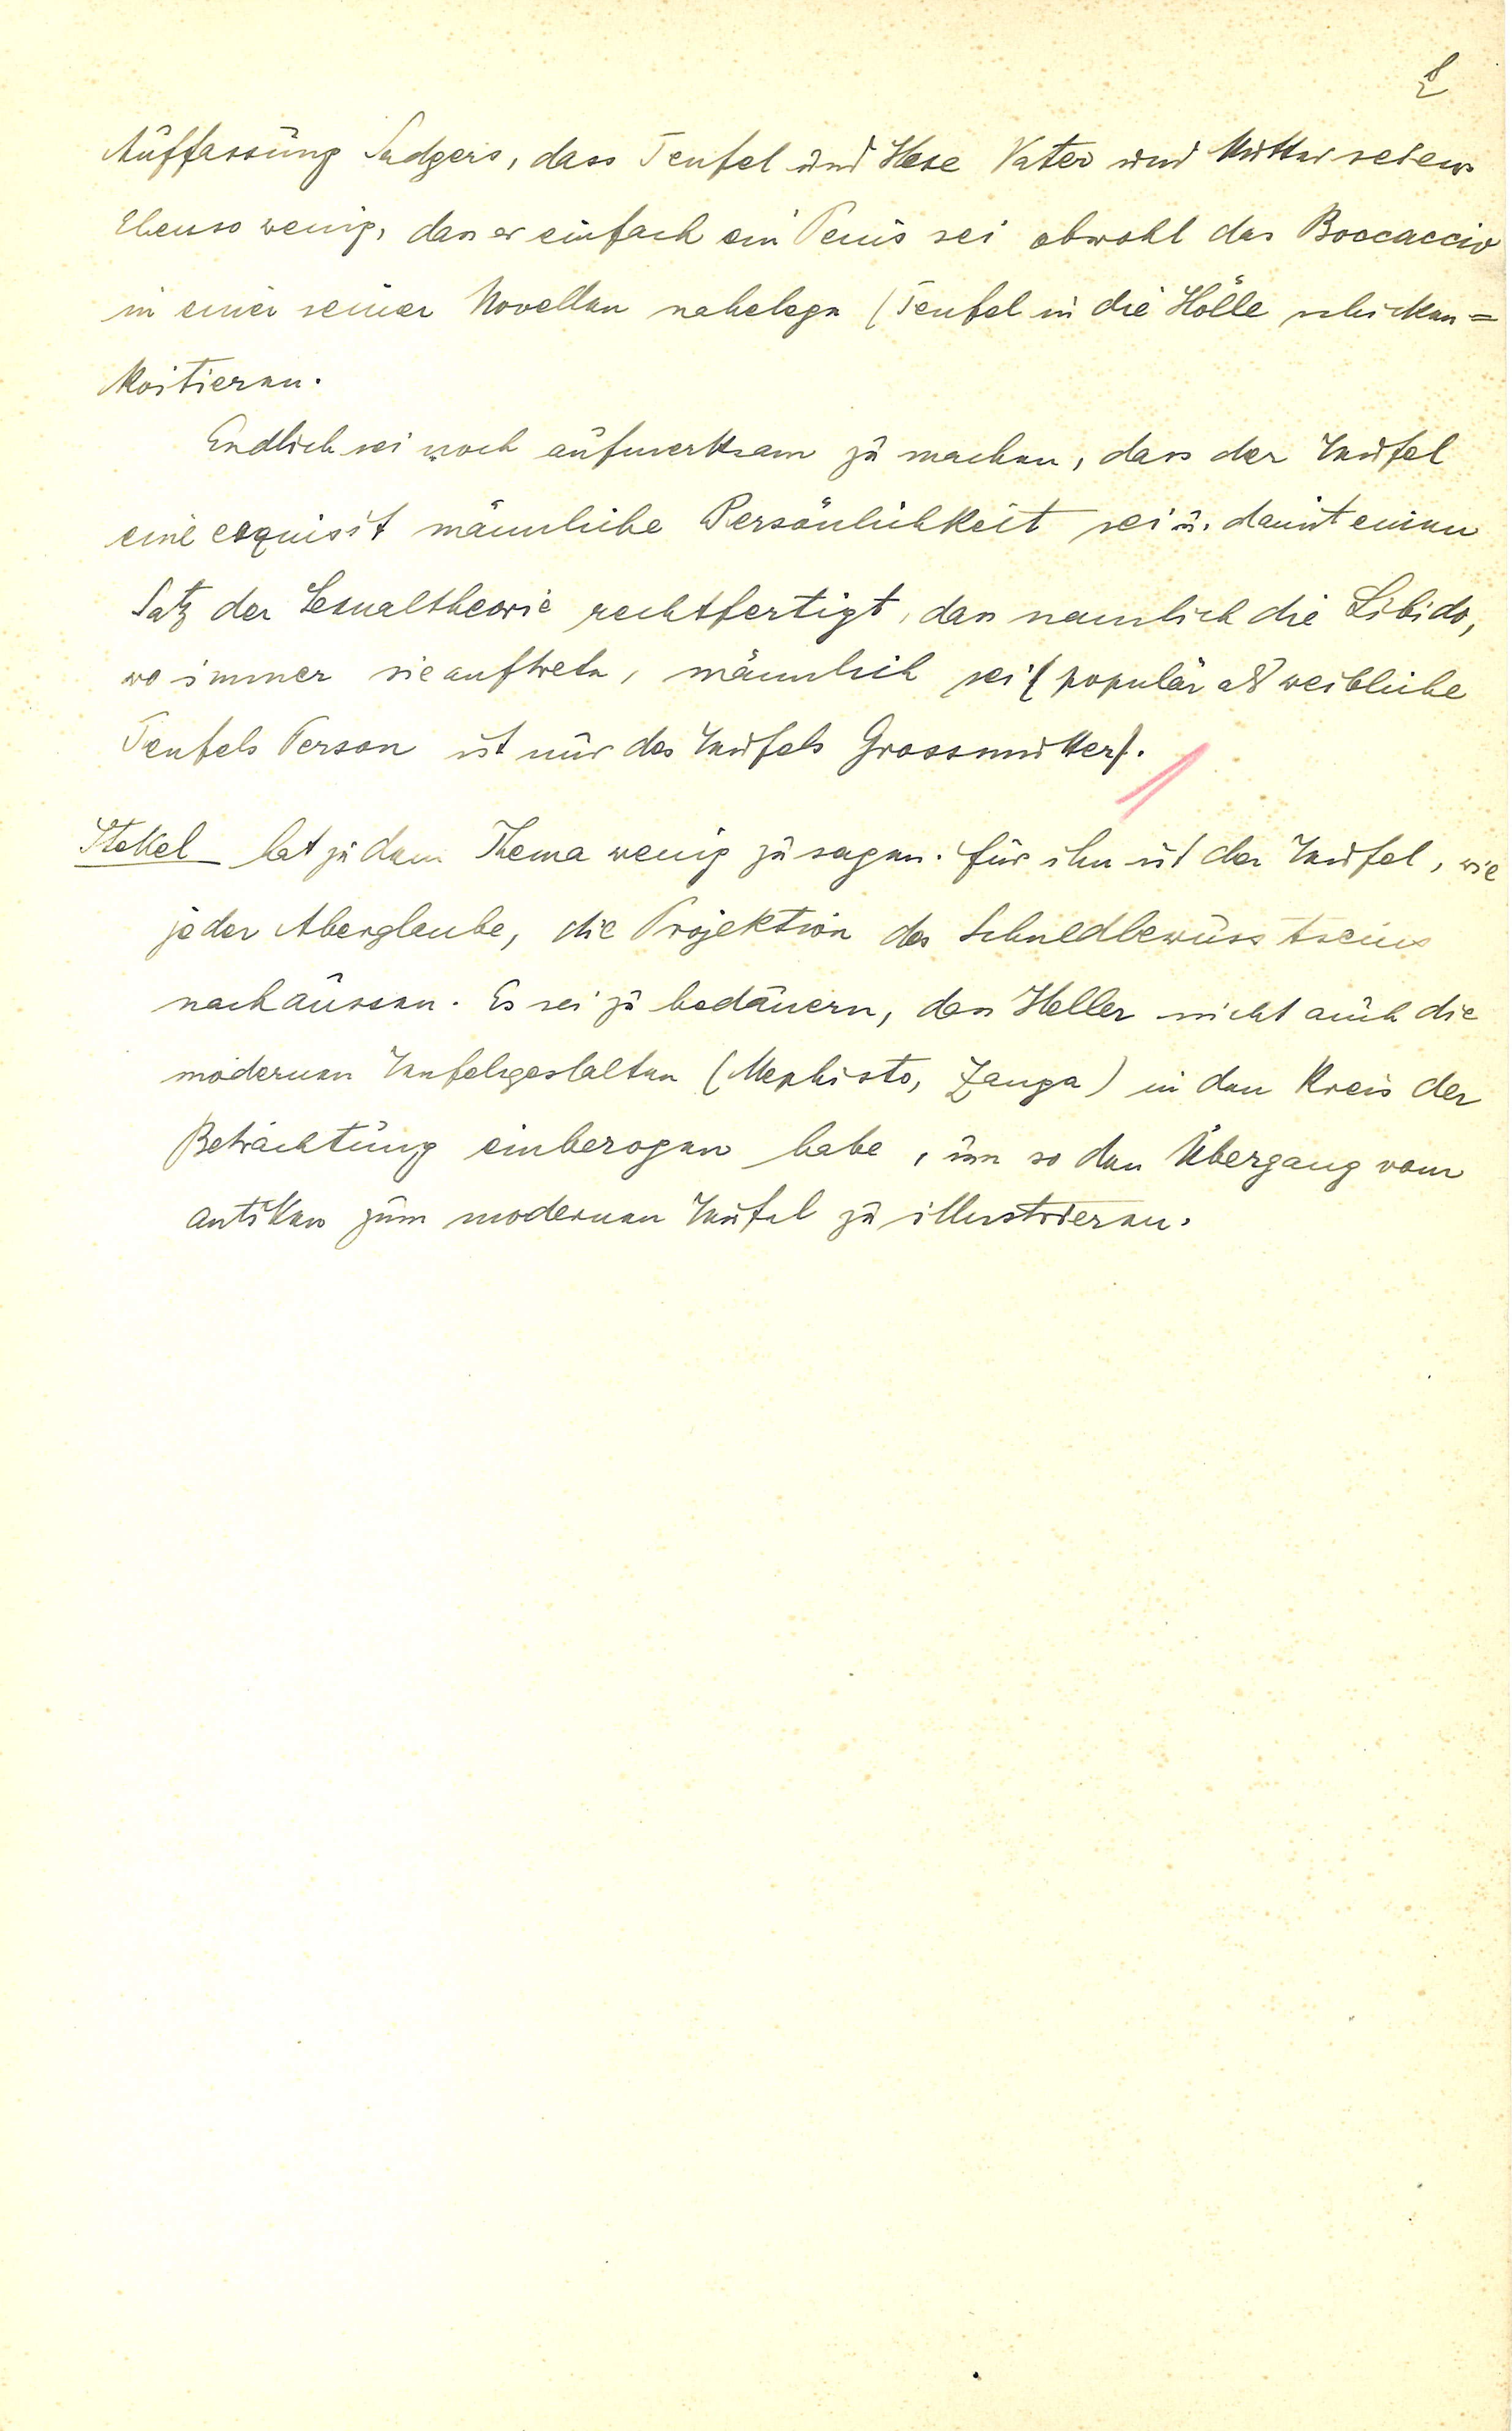 8
Auffassung Sadgers, dass Teufel und Hexe Vater und Mutter seien.
Ebenso wenig, dass er einfach ein Penis sei obwohl das Boccaccio
in einer seiner Novellen nahelege (Teufel in die Hölle schicken =
Koitieren.
Endlich sei noch aufmerksam zu machen, dass der Teufel
eine exquisit männliche Persönlichkeit sei u. damit einen
Satz der Sexualtheorie rechtfertigt, dass nämlich die Libido,
wo immer sie auftrete, männlich sei (populär als weibliche
Teufels Person ist nur des Teufels Grossmutter).
Stekel hat zu dem Thema wenig zu sagen. Für ihn ist der Teufel, wie
jeder Aberglaube, die Projektion des Schuldbewusstseins
nach aussen. Es sei zu bedauern, dass Heller nicht auch die
modernen Teufelsgestalten (Mephisto, Zanga) in den Kreis der
Betrachtung einbezogen habe, um so den Übergang vom
antiken zum modernen Teufel zu illustrieren.